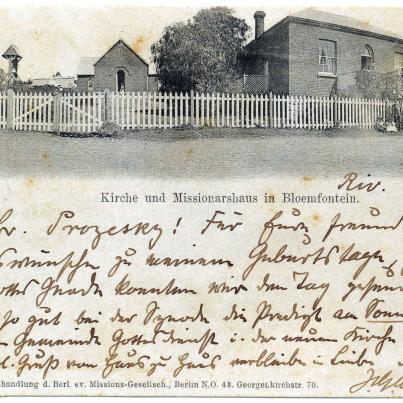 Kirche und Missionarshaus in Bloemfontein.
Riv.
Br. Prozesky! Für Eure freund
wünsche zu meinem Geburtstage
Gottes Gnade konnten wir den Tag
so gut bei der Synode die Predigt am Sonn
Gemeinde Gottesdienst i. der neuen Kirche
Gruß von Haus zu Haus verbleibe in Liebe
handlung d. Berl. ev. Missions-Gesellsch., Berlin N.O. 43. Georgenkirchstr. 70.